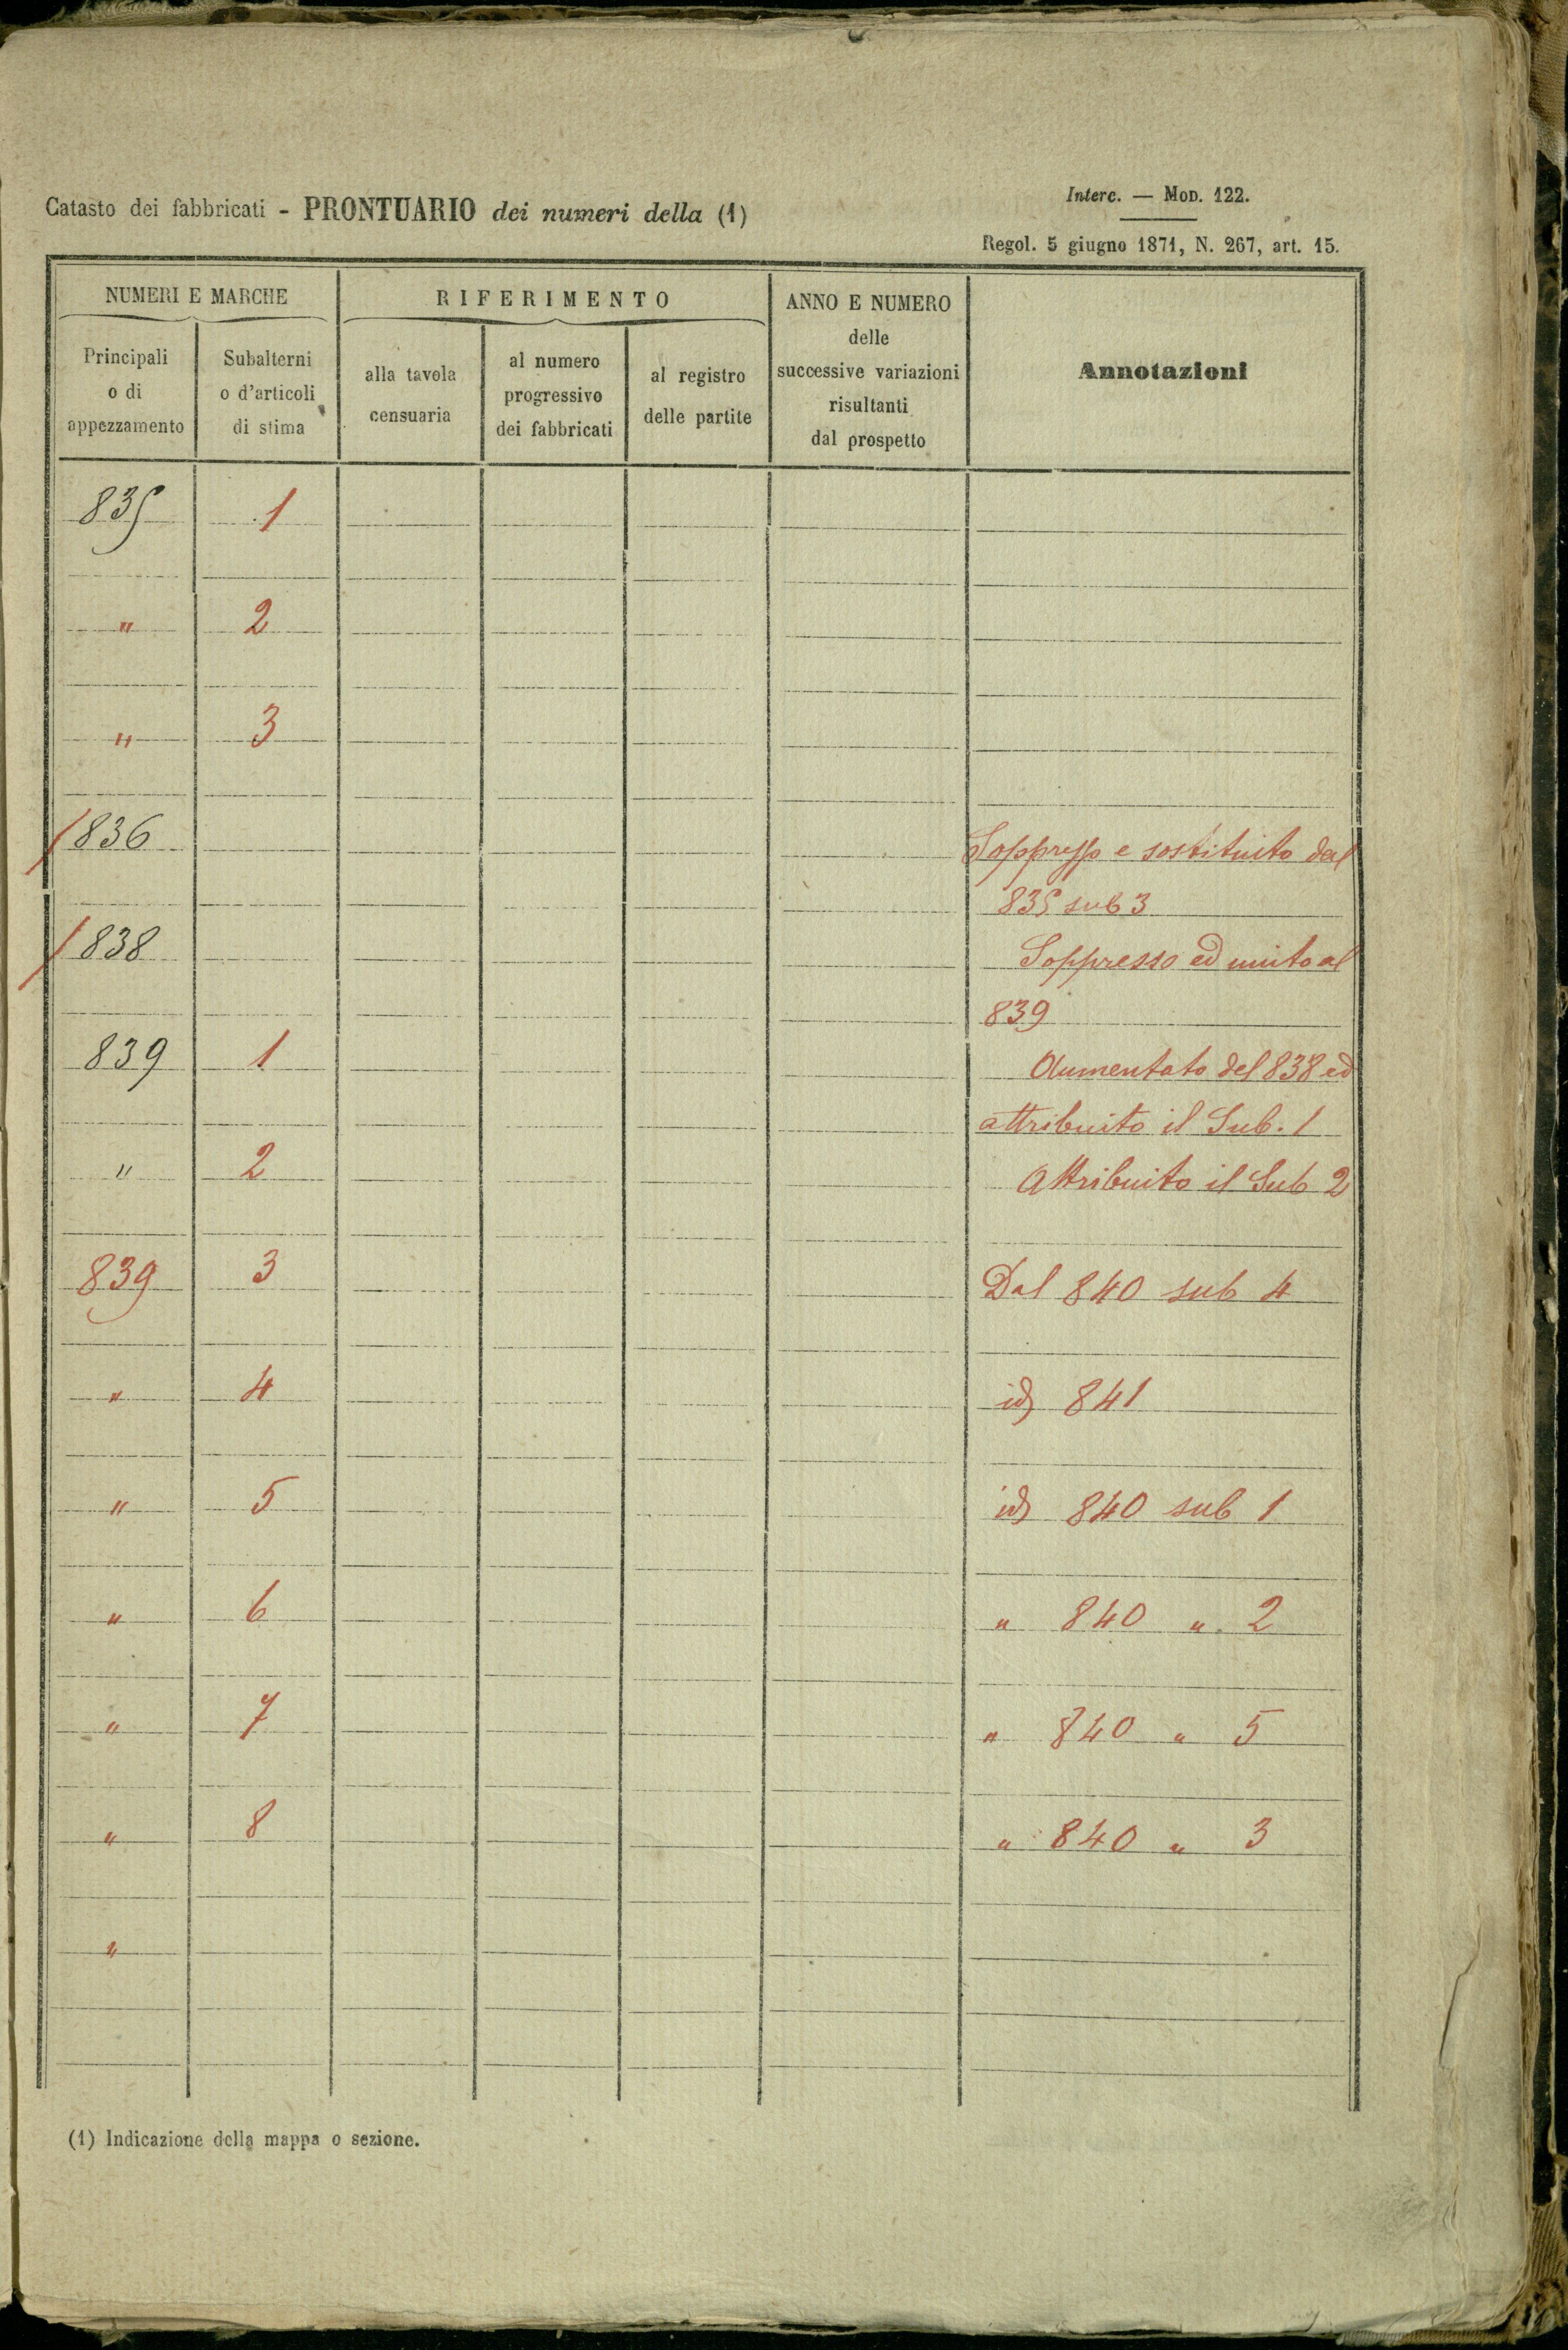 Catasto dei fabbricati - PRONTUARIO dei numeri della (1)
Interc. — Mod. 122.
Regol. 5 giugno 1871, N. 267, art. 15.
NUMERI E MARCHE
Principali o di appezzamento
Subalterni o d'articoli di stima
RIFERIMENTO
alla tavola censuaria
al numero progressivo dei fabbricati
al registro delle partite
ANNO E NUMERO delle successive variazioni risultanti dal prospetto
Annotazioni
835 1
" 2
" 3
/ 836 Soppresso e sostituito dal
835 sub 3
/ 838 Soppresso ed unito al
839
839 1 Aumentato del 838 ed
attribuito il Sub. 1
" 2 Attribuito il Sub 2
839 3 Dal 840 sub 4
" 4 id 841
" 5 id 840 sub 1
" 6 " 840 " 2
" 7 " 840 " 5
" 8 " 840 " 3
"
(1) Indicazione della mappa o sezione.